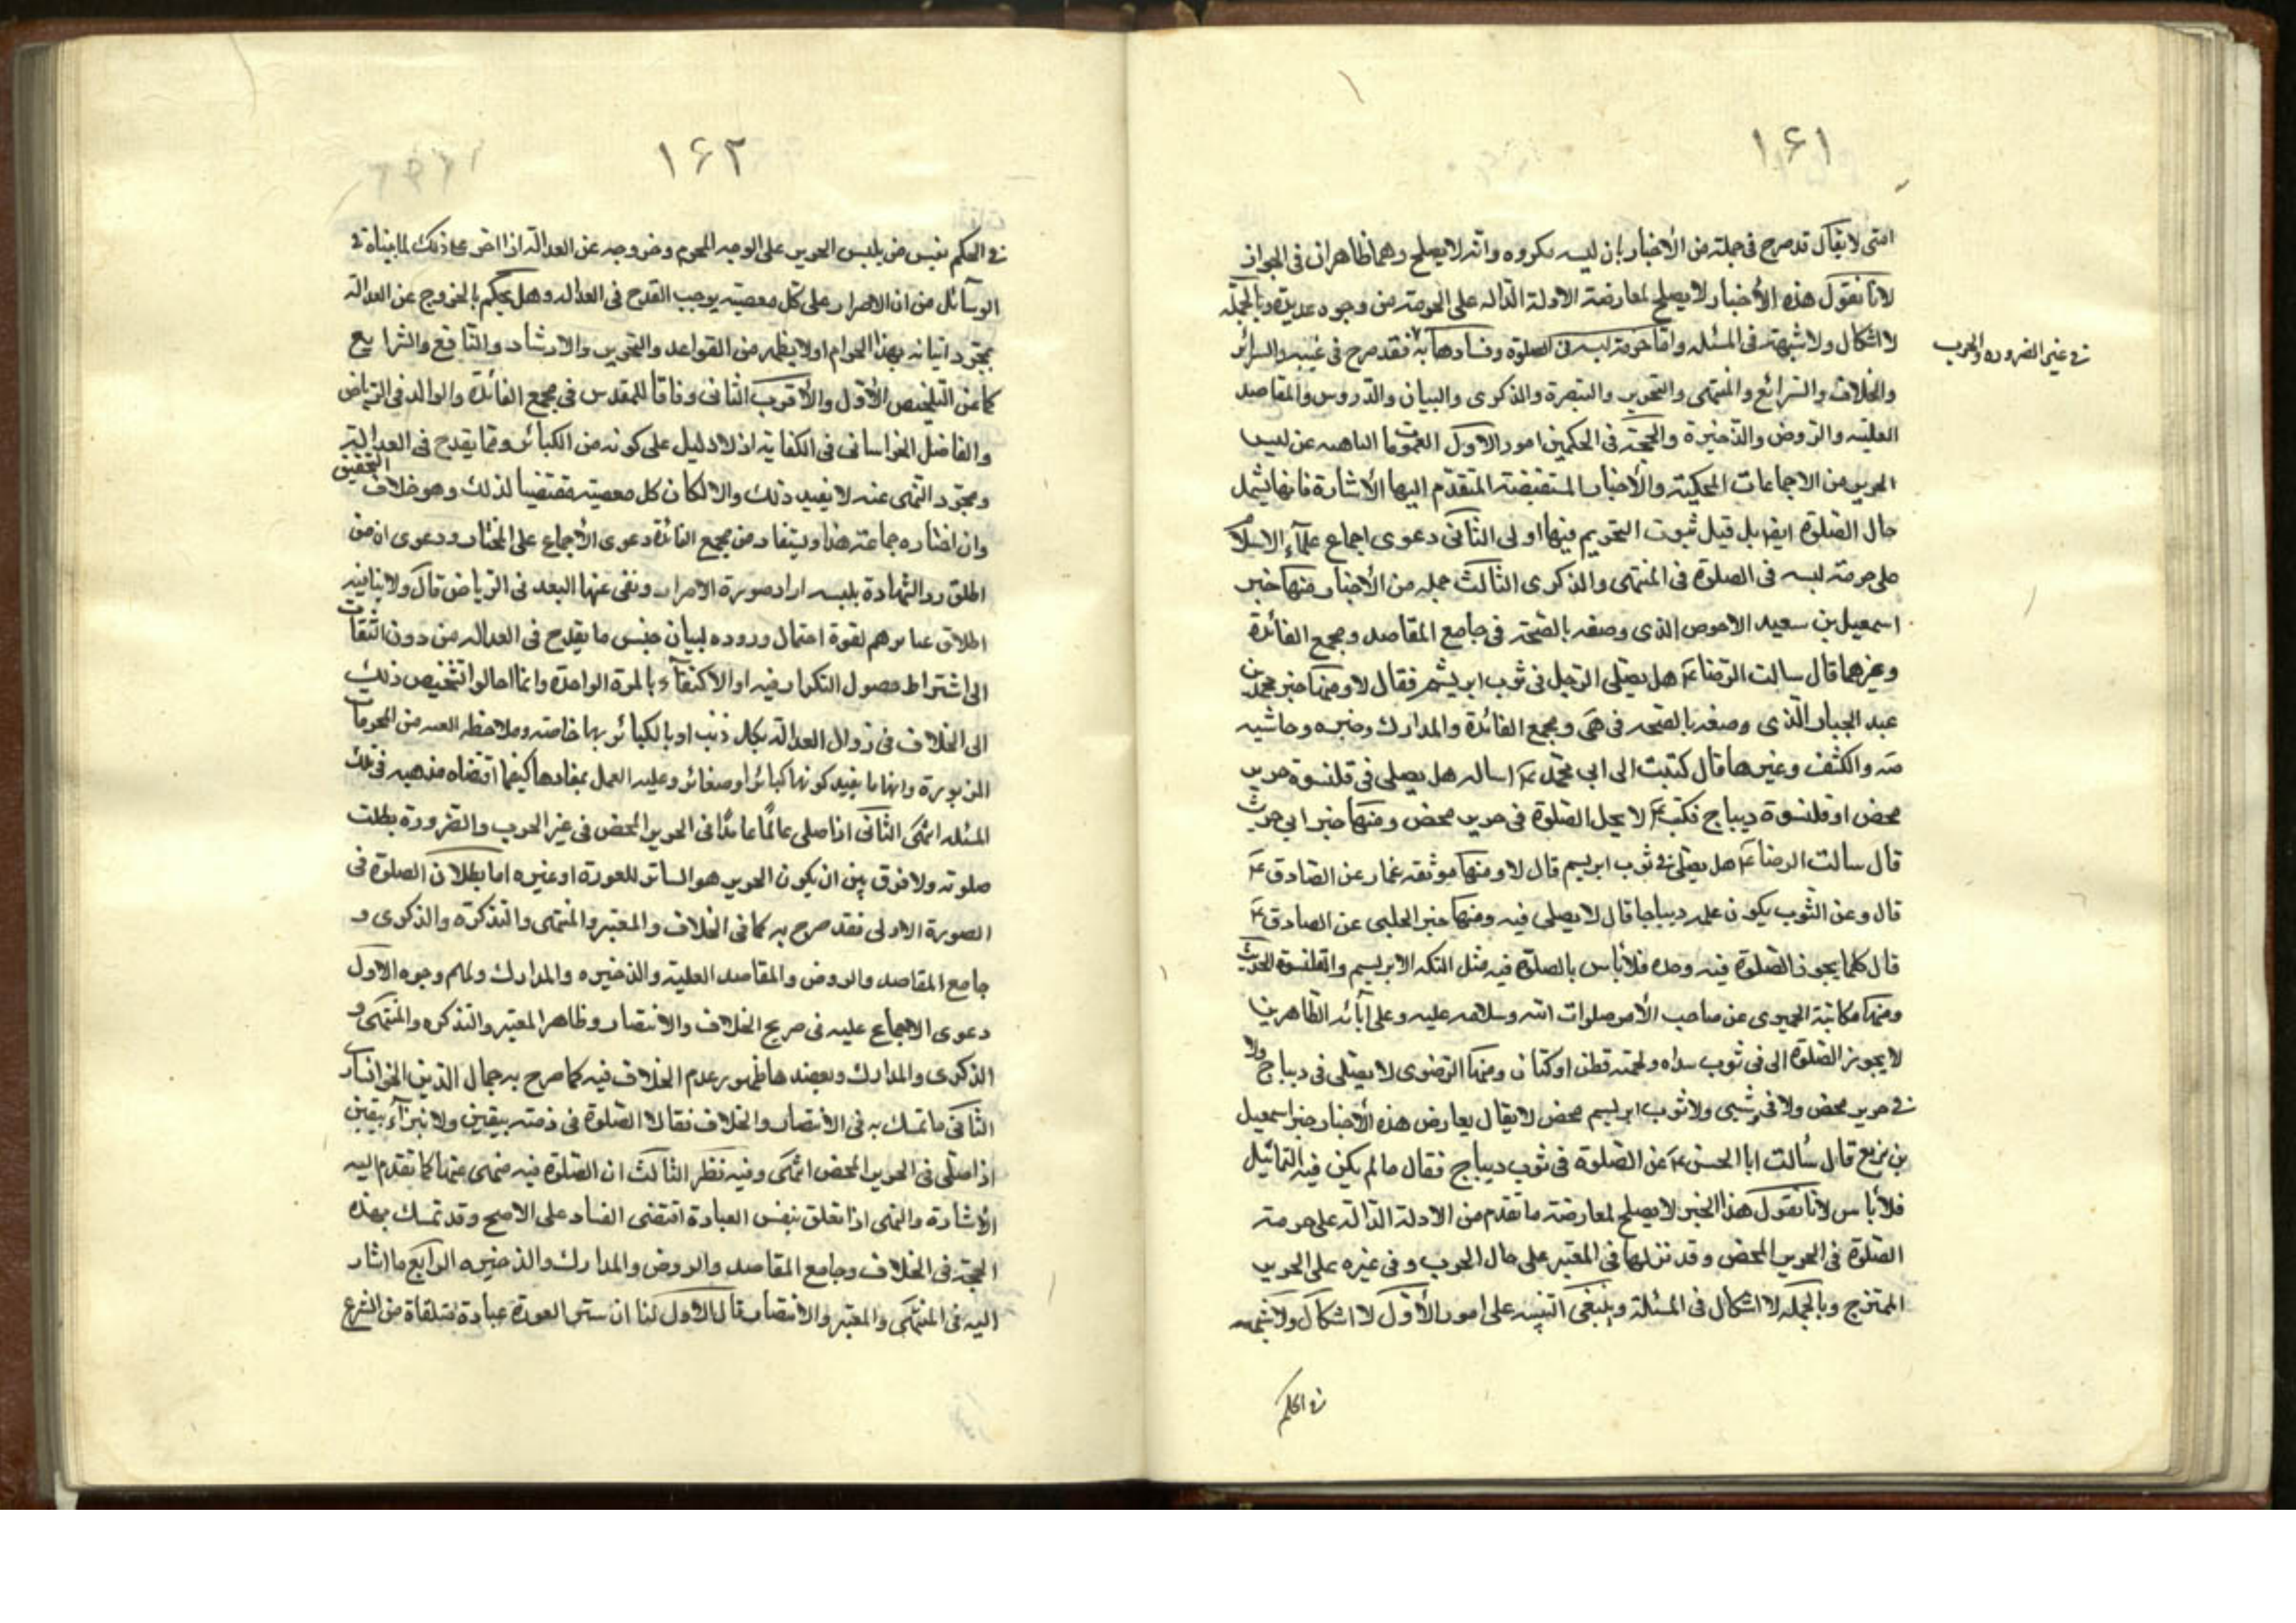 ١٦١
امتى لا يقال قد صرح فى جملة من الأخبار بان لبسه مكروه وانه لا يصلح وهما ظاهران فى الجواز
لانا نقول هذه الأخبار لا يصلح لمعارضة الادلة الداله على الحرمة من وجوه عديدة وبالجمله
لا اشكال ولا شبهة فى المسئله واما حرمة لبسه فى الصلوة وفسادها به فقد صرح فى والسرائر
فى غير الضروره والحرب
والخلاف والشرائع والمنتهى والتحرير والتبصرة والذكرى والبيان والدروس والمقاصد
العليه والروض والذخيرة والحجة فى الحكمين امور الاول العمومات الناهيه عن لبس
الحرير من الاجماعات المحكية والأخبار المستفيضة المتقدم اليها الأشارة فانها يشمل
حال الصلوة ايضا بل قيل ثبوت التحريم فيها اولى الثانى دعوى اجماع علمآء الاسلام
على حرمة لبسه فى الصلوة فى المنتهى والذكرى الثالث جمله من الأخبار منها خبر
اسمعيل بن سعيد الاحوص الذى وصفه بالصحة فى جامع المقاصد ومجمع الفائدة
وغيرهما قال سالت الرضا ع هل يصلى الرجل فى ثوب ابريشم فقال لا ومنها خبر محمد بن
عبد الجبار الذى وصفه بالصحه فى هى ومجمع الفائدة والمدارك وحاشيه
والكشف وغيرها قال كتبت الى ابى محمد ع اساله هل يصلى فى قلنسوة حرير
محض او قلنسوة ديباج فكتب ع لا يحل الصلوة فى حرير محض ومنها خبر ابى حرث
قال سالت الرضا ع هل يصلى فى ثوب ابريسم قال لا ومنها موثقه عمار عن الصادق ع
قال وعن الثوب يكون علمه ديباجا قال لا يصلى فيه ومنها خبر الحلبى عن الصادق ع
قال كلما يجوز الصلوة فيه وحده فلا بأس بالصلوة فيه مثل التكه الابريسم والقلنسوة الحديث
ومنها مكاتبة الحميرى عن صاحب الأمر صلوات الله وسلامه عليه وعلى آبائه الطاهرين
لا يجوز الصلوة الى فى ثوب سداه ولحمته قطن او كتان ومنها الرضوى لا يصلى فى ديباج ولا
فى حرير محض ولا فى وشى ولا ثوب ابريسم محض لا يقال يعارض هذه الأخبار خبر اسمعيل
بن بزيع قال سألت ابا الحسن ع عن الصلوة فى ثوب ديباج فقال ما لم يكن فيه التماثيل
فلا بأس لانا نقول هذا الخبر لا يصلح لمعارضة ما تقدم من الادلة الدالة على حرمة
الصلوة فى الحرير المحض وقد نزلها فى المعتبر على حال الحرب وفى غيره على الحرير
الممتزج وبالجمله لا اشكال فى المسئلة وينبغى التنبيه على امور الأول لا اشكال ولا شبهه
فى الحكم
١٦٢
فى الحكم بفسق من يلبس الحرير على الوجه المحرم وخروجه عن العدالة اذا اصر على ذلك لما بيناه فى
الوسآئل من ان الاصرار على كل معصية يوجب القدح فى العداله وهل يحكم بالخروج عن العدالة
بمجرد اتيانه بهذا الحرام اولا يظهر من القواعد والتحرير والارشاد والنافع والشرايع
كما عن التلخيص الأول والأقرب الثانى وفاقا للمقدس فى مجمع الفائدة والوالد فى الرياض
والفاضل الخراسانى فى الكفاية اذ لا دليل على كونه من الكبائر ومما يقدح فى العدالة
ومجرد النهى عنه لا يفيد ذلك والا لكان كل معصية مقتضيا لذلك وهو خلاف التحقيق
وان اختاره جماعة هذا ويستفاد من مجمع الفائدة دعوى الأجماع على المختار ودعوى ان من
اطلق رد الشهادة بلبسه اراد صورة الاصرار ونفى عنها البعد فى الرياض قال ولا ينافيه
اطلاق عبائرهم لقوة احتمال وروده لبيان جنس ما يقدح فى العداله من دون التفات
الى اشتراط حصول التكرار فيه او الاكتفآء بالمرة الواحدة وانما احالوا تشخيص ذلك
الى الخلاف فى زوال العدالة بكل ذنب او بالكبائر بها خاصة وملاحظه من المحرمات
المزبورة وانها ما يفيد كونها كبائر او صغائر وعليه العمل بمفادها كيفما اقتضاه مذهبه فى تلك
المسئله انتهى الثانى اذا صلى عالمًا عامدًا فى الحرير المحض فى غير الحرب والضرورة بطلت
صلوته ولا فرق بين ان يكون الحرير هو الساتر للعورة او غيره اما بطلان الصلوة فى
الصورة الاولى فقد صرح به كما فى الخلاف والمعتبر والمنتهى والتذكرة والذكرى و
جامع المقاصد والروض والمقاصد العلية والذخيره والمدارك ولهم وجوه الاول
دعوى الاجماع عليه فى صريح الخلاف والانتصار وظاهر المعتبر والتذكره والمنتهى و
الذكرى والمدارك ويعضدها ظهور عدم الخلاف فيه كما صرح به جمال الدين الخوانسارى
الثانى ما تمسك به فى الأنتصار والخلاف فقالا الصلوة فى ذمته بيقين ولا تبرأ بيقين
اذا صلى فى الحرير المحض انتهى وفيه نظر الثالث ان الصلوة فيه منهى عنها كما تقدم اليه
الأشارة والنهى اذا تعلق بنفس العبادة اقتضى الفساد على الاصح وقد تمسك بهذه
الحجة فى الخلاف وجامع المقاصد والروض والمدارك والذخيره الرابع ما اشار
اليه فى المنتهى والمعتبر والانتصار قال الاول لنا ان ستر العورة عبادة متلقاة من الشرع